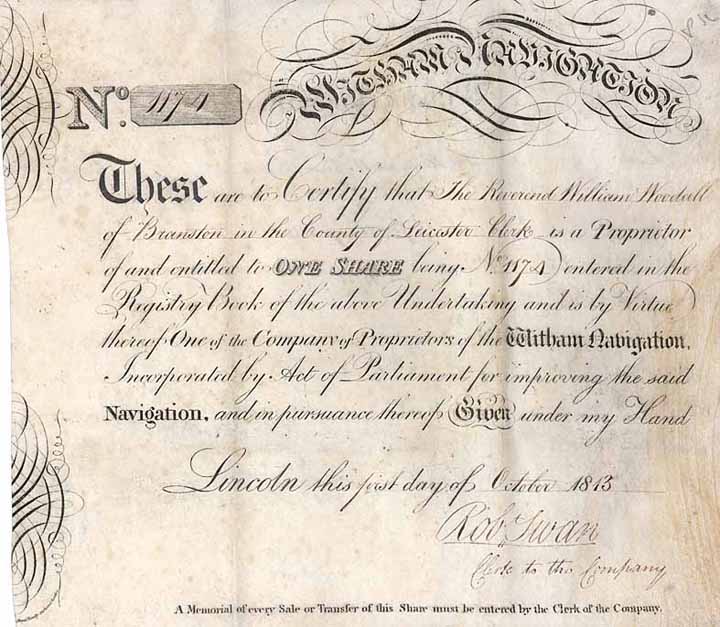 WITHAM NAVIGATION
No. 1174
These are to Certify that The Reverend William Woodvill
of Branston in the County of Leicester Clerk is a Proprietor
of and entitled to ONE SHARE being No. 1174 entered in the
Registry Book of the above Undertaking and is by Virtue
thereof One of the Company of Proprietors of the Witham Navigation,
Incorporated by Act of Parliament for improving the said
Navigation, and in pursuance thereof Given under my Hand
Lincoln this first day of October 1813
Rob Swan
Clerk to the Company
A Memorial of every Sale or Transfer of this Share must be entered by the Clerk of the Company.